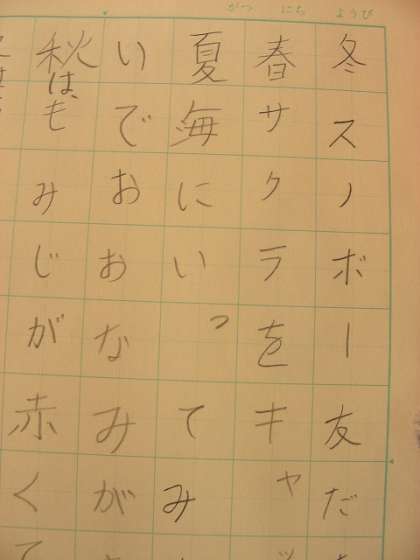 がつ にち ようび
冬スノボー友だ
春サクラをキャッ
夏海にいってみ
いでおおなみが
秋は、もみじが赤くて